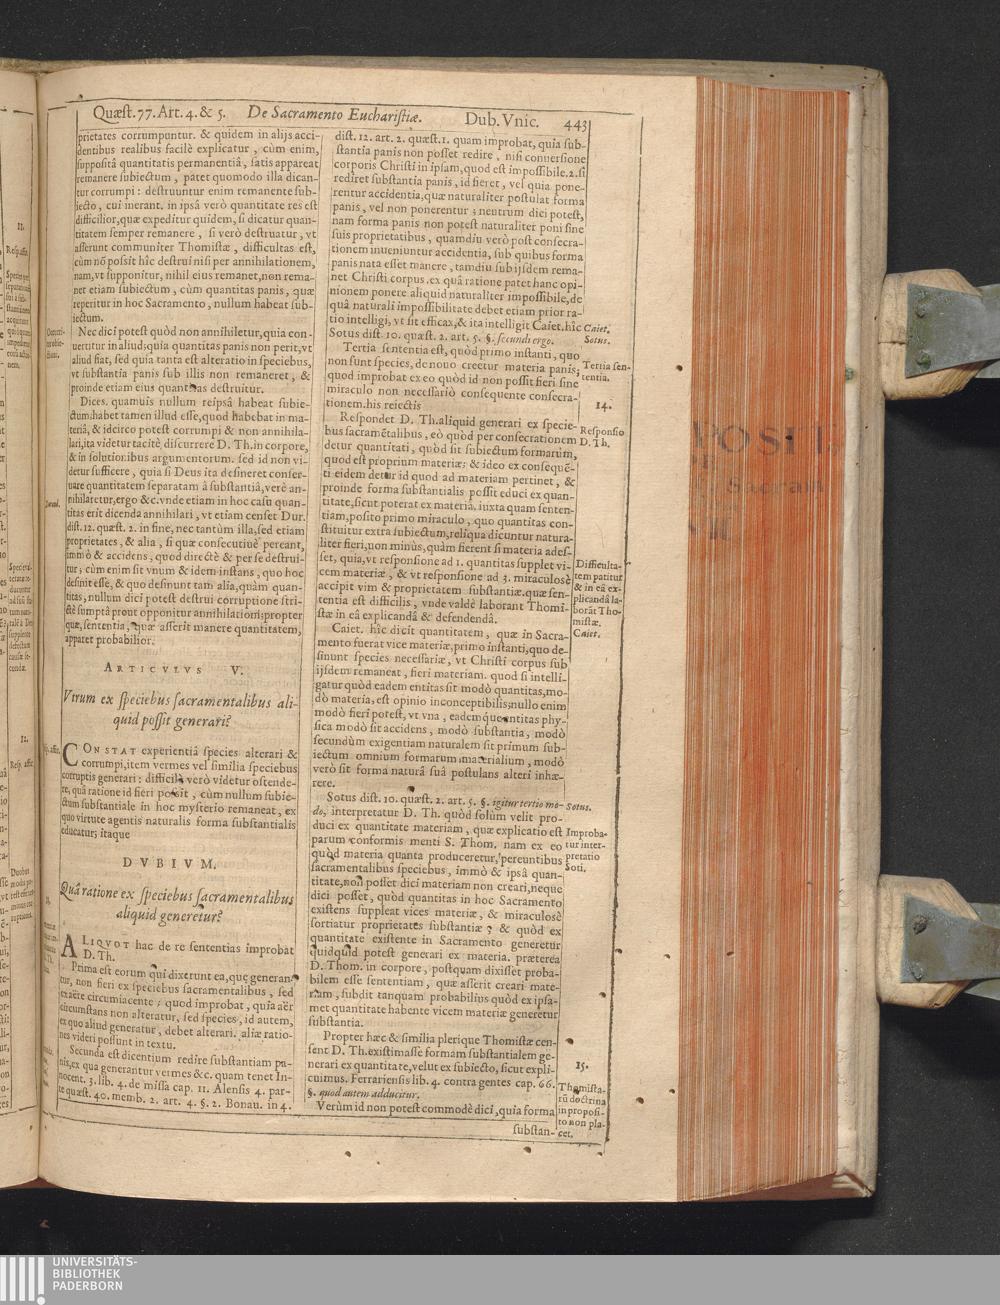 Quæst. 77. Art. 4. & 5. De Sacramento Euchariſtiæ. Dub. Vnic. 443
prietates corrumpuntur. & quidem in alijs acci-
dentibus realibus facilè explicatur, cùm enim,
ſuppoſitâ quantitatis permanentiâ, ſatis appareat
remanere ſubiectum, patet quomodo illa dican-
tur corrumpi: deſtruuntur enim remanente ſub-
iecto, cui inerant. in ipſâ verò quantitate res eſt
difficilior, quæ expeditur quidem, ſi dicatur quan-
titatem ſemper remanere, ſi verò deſtruatur, vt
aſſerunt communiter Thomiſtæ, difficultas eſt,
cùm nõ poſsit hîc deſtrui niſi per annihilationem,
nam, vt ſupponitur, nihil eius remanet, non rema-
net etiam ſubiectum, cùm quantitas panis, quæ
reperitur in hoc Sacramento, nullum habeat ſub-
iectum.
Nec dici poteſt quòd non annihiletur, quia con-
uertitur in aliud; quia quantitas panis non perit, vt
aliud fiat, ſed quia tanta eſt alteratio in ſpeciebus,
vt ſubſtantia panis ſub illis non remaneret, &
proinde etiam eius quantitas deſtruitur.
Dices. quamuis nullum reipſâ habeat ſubie-
ctum, habet tamen illud eſſe, quod habebat in ma-
teriâ, & idcirco poteſt corrumpi & non annihila-
lari, ita videtur tacitè diſcurrere D. Th. in corpore,
& in ſolutionibus argumentorum. ſed id non vi-
detur ſufficere, quia ſi Deus ita deſineret conſer-
uare quantitatem ſeparatam â ſubſtantiâ, verè an-
nihilatetur, ergo &c. vnde etiam in hoc caſu quan-
titas erit dicenda annihilari, vt etiam cenſet Dur.
diſt. 12. quæſt. 2. in fine, nec tantùm illa, ſed etiam
proprietates, & alia, ſi quæ conſecutiuè pereant,
immò & accidens, quod directè & per ſe deſtrui-
tur; cùm enim ſit vnum & idem inſtans, quo hoc
deſinit eſſe, & quo deſinunt tam alia, quàm quan-
titas, nullum dici poteſt deſtrui corruptione ſtri-
ctè ſumptâ prout opponitur annihilationi; propter
quæ, ſententia, quæ aſſerit manere quantitatem,
apparet probabilior.
ARTICVLVS V.
Vtrum ex ſpeciebus ſacramentalibus ali-
quid poſſit generari?
CONSTAT experientiâ ſpecies alterari &
corrumpi, item vermes vel ſimilia ſpeciebus
corruptis generari: difficile verò videtur oſtende-
re, quâ ratione id fieri poſsit, cùm nullum ſubie-
ctum ſubſtantiale in hoc myſterio remaneat, ex
quo virtute agentis naturalis forma ſubſtantialis
educatur; itaque
DVBIVM.
Quâ ratione ex ſpeciebus ſacramentalibus
aliquid generetur?
ALIQVOT hac de re ſententias improbat
D. Th.
Prima eſt eorum qui dixerunt ea, quę generan-
tur, non fieri ex ſpeciebus ſacramentalibus, ſed
ex aëre circumiacente; quod improbat, quia aër
circumſtans non alteratur, ſed ſpecies, id autem,
ex quo aliud generatur, debet alterari. aliæ ratio-
nes videri poſſunt in textu.
Secunda eſt dicentium redire ſubſtantiam pa-
nis, ex qua generantur vermes &c. quam tenet In-
nocent. 3. lib. 4. de miſſa cap. 11. Alenſis 4. par-
te quæſt. 40. memb. 2. art. 4. §. 2. Bonau. in 4.
diſt. 12. art. 2. quæſt. 1. quam improbat, quia ſub-
ſtantia panis non poſſet redire, niſi conuerſione
corporis Chriſti in ipſam, quod eſt impoſſibile. 2. ſi
rediret ſubſtantia panis, id fieret, vel quia pone-
rentur accidentia, quæ naturaliter poſtulat forma
panis, vel non ponerentur; neutrum dici poteſt,
nam forma panis non poteſt naturaliter poni ſine
ſuis proprietatibus, quamdiu verò poſt conſecra-
tionem inueniuntur accidentia, ſub quibus forma
panis nata eſſet manere, tamdiu ſub ijſdem rema-
net Chriſti corpus. ex quâ ratione patet hanc opi-
nionem ponere aliquid naturaliter impoſſibile, de
quâ naturali impoſſibilitate debet etiam prior ra-
tio intelligi, vt ſit efficax, & ita intelligit Caiet. hîc
Sotus diſt. 10. quæſt. 2. art. 5. §. ſecundi ergo.
Caiet.
Sotus.
Tertia ſententia eſt, quòd primo inſtanti, quo
non ſunt ſpecies, de nouo creetur materia panis;
quod improbat ex eo quòd id non poſſit fieri ſine
miraculo non neceſſariò conſequente conſecra-
tionem. his reiectis
Tertia ſen-
tentia.
14.
Reſpondet D. Th. aliquid generari ex ſpecie-
bus ſacramẽtalibus, eò quòd per conſecrationem
detur quantitati, quòd ſit ſubiectum formarum,
quod eſt proprium materiæ; & ideo ex conſequẽ-
ti eidem detur id quod ad materiam pertinet, &
proinde forma ſubſtantialis poſſit educi ex quan-
titate, ſicut poterat ex materiâ. iuxta quam ſenten-
tiam, poſito primo miraculo, quo quantitas con-
ſtituitur extra ſubiectum, reliqua dicuntur natura-
liter fieri, non minùs, quàm fierent ſi materia adeſ-
ſet, quia, vt reſponſione ad 1. quantitas ſupplet vi-
cem materiæ, & vt reſponſione ad 3. miraculosè
accipit vim & proprietatem ſubſtantiæ. quæ ſen-
tentia eſt difficilis, vnde valdè laborant Thomi-
ſtæ in eâ explicandâ & defendendâ.
Reſponſio
D. Th.
Difficulta-
tem patitur
& in eâ ex-
plicandâ la-
borāt Tho-
miſtæ.
Caiet.
Caiet. hîc dicit quantitatem, quæ in Sacra-
mento fuerat vice materiæ, primo inſtanti, quo de-
ſinunt ſpecies neceſſariæ, vt Chriſti corpus ſub
ijſdem remaneat, fieri materiam. quod ſi intelli-
gatur quòd eadem entitas ſit modò quantitas, mo-
dò materia, eſt opinio inconceptibilis; nullo enim
modò fieri poteſt, vt vna, eademque entitas phy-
ſica modò ſit accidens, modò ſubſtantia, modò
ſecundùm exigentiam naturalem ſit primum ſub-
iectum omnium formarum materialium, modò
verò ſit forma naturâ ſuâ poſtulans alteri inhæ-
rere.
Sotus diſt. 10. quæſt. 2. art. 5. §. igitur tertio mo-
do, interpretatur D. Th. quòd ſolùm velit pro-
duci ex quantitate materiam, quæ explicatio eſt
parum conformis menti S. Thom. nam ex eo
quòd materia quanta produceretur, pereuntibus
ſacramentalibus ſpeciebus, immò & ipsâ quan-
titate, non poſſet dici materiam non creari, neque
dici poſſet, quòd quantitas in hoc Sacramento
exiſtens ſuppleat vices materiæ, & miraculosè
ſortiatur proprietates ſubſtantiæ? & quòd ex
quantitate exiſtente in Sacramento generetur
quidquid poteſt generari ex materia. præterea
D. Thom. in corpore, poſtquam dixiſſet proba-
bilem eſſe ſententiam, quæ aſſerit creari mate-
riam, ſubdit tanquam probabilius quòd ex ipſa-
met quantitate habente vicem materiæ generetur
ſubſtantia.
Sotus.
Improba-
tur inter-
pretatio
Soti.
Propter hæc & ſimilia plerique Thomiſtæ cen-
ſent D. Th. exiſtimaſſe formam ſubſtantialem ge-
nerari ex quantitate, velut ex ſubiecto, ſicut expli-
cuimus. Ferrarienſis lib. 4. contra gentes cap. 66.
§. quod autem adducitur.
Verùm id non poteſt commodè dici, quia forma
ſubſtan-
15.
Thomiſta-
rũ doctrina
in propoſi-
to non pla-
cet.
UNIVERSITÄTS-
BIBLIOTHEK
PADERBORN